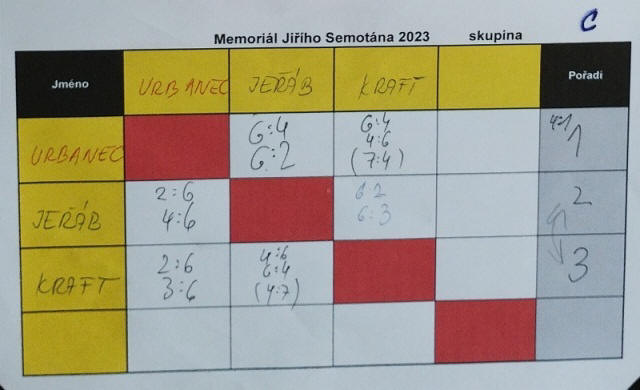 Memoriál Jiřího Semotána 2023 skupina C
Jméno URBANEC JEŘÁB KRAFT Pořadí
URBANEC 6:4 6:4 4:1 1
6:2 4:6
(7:4)
JEŘÁB 2:6 6:2 2
4:6 6:3
KRAFT 2:6 4:6 3
3:6 6:4
(4:7)